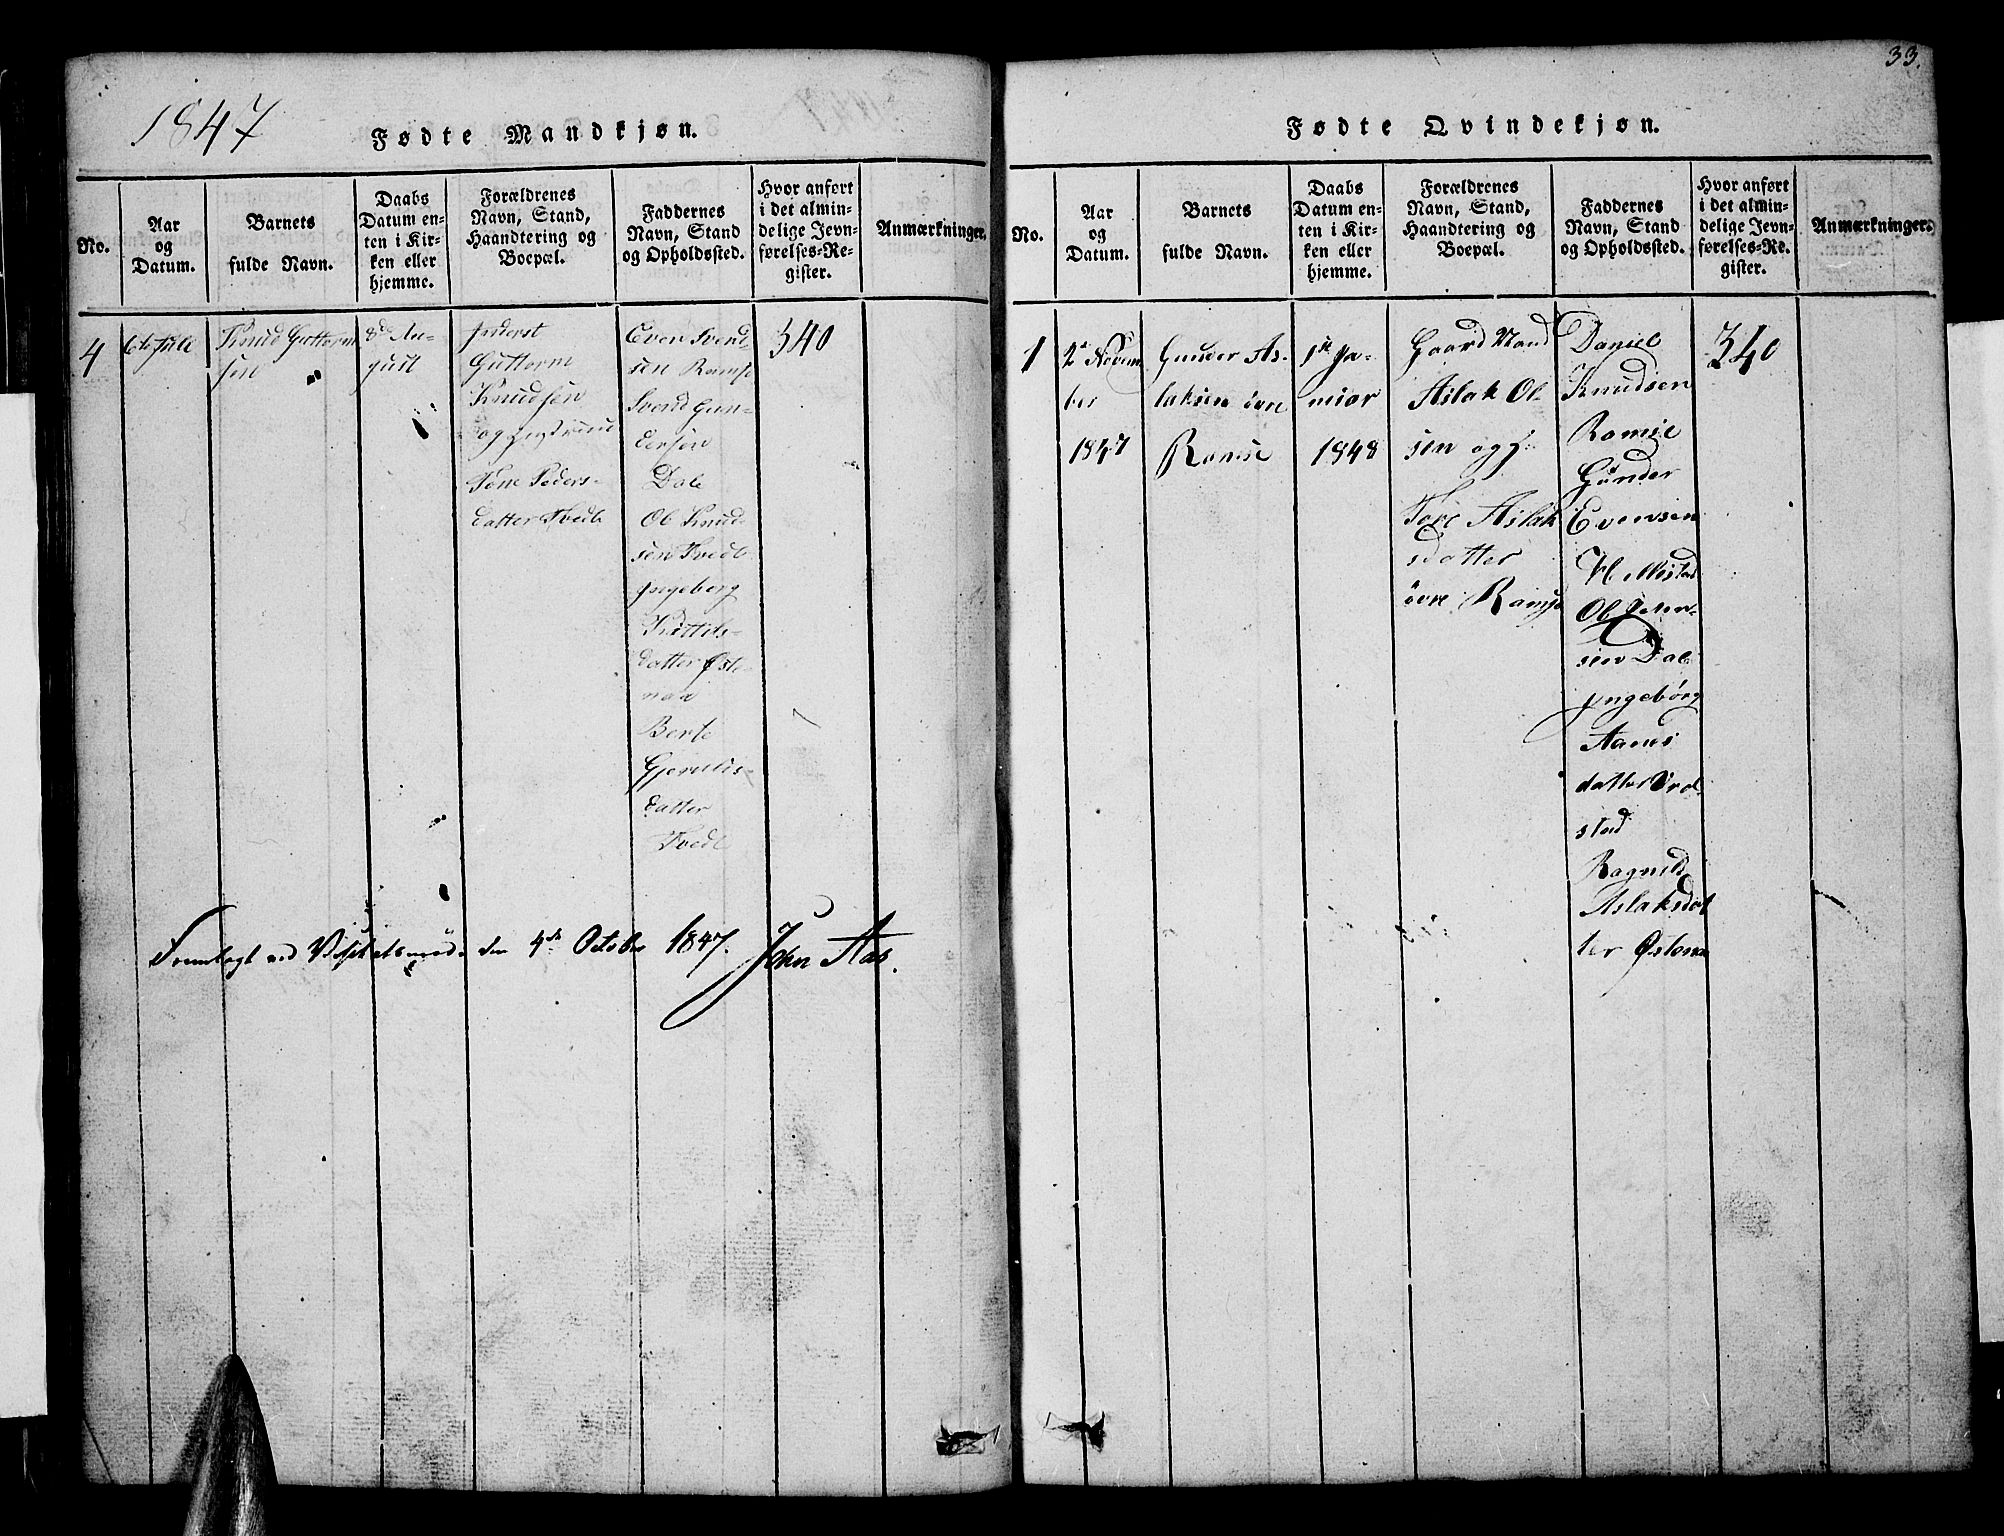 33.
1847
Fødte Mandkjøn.
No.
Aar
og
Datum.
Barnets
fulde Navn.
Daabs
Datum en-
ten i Kir-
ken eller
hjemme.
Forældrenes
Navn, Stand,
Haandtering og
Boepæl.
Faddernes
Navn, Stand
og Opholdssted.
Hvor anført
i det almin-
delige Jevn-
førelses-Re-
gister.
Anmærkninger.
4
6te Juli
Knud Guttorm
sen
8de Au-
gust
Inderst
Guttorm
Knudsen
og
Tone Peders-
datter Tvedt
Even Svend
sen Ramse
Svend Gun-
dersen
Dale
Ole Knud-
sen Tvedt
Ingeborg
Kittils-
datter Øste-
naa
Berte
Gjerulfs-
datter
Tvedt
340
Fremlagt ved den 4de October 1847. John Aas.
Fødte Qvindekjøn.
No.
Aar
og
Datum.
Barnets
fulde Navn.
Daabs
Datum en-
ten i Kir-
ken eller
hjemme.
Forældrenes
Navn, Stand,
Haandtering og
Boepæl.
Faddernes
Navn, Stand
og Opholdssted.
Hvor anført
i det almin-
delige Jevn-
førelses-Re-
gister.
Anmærkninger.
1
2 Novem
ber
1847
Gunder As-
laksen øvre
Ramse
1ste Ja-
nuar
1848
Gaard Mand
Aslak Ol
sen og
Tore Aslak
sdatter
øvre Ramse
Daniel
Knudsen
Ramse
Gunder
Evensen
Ole
sen Dale
Ingebørg
datter
stad
Ragnild
Aslaksdat
ter Østenaa
340